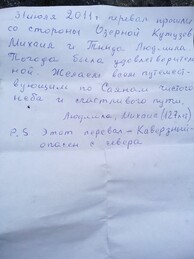 31 июля 2011 г. перевал прошли
со стороны Озерной Кутузов
Михаил и Тында Людмила
Погода была удовлетворитель
ной Желаем всем путешест-
вующим по Саянам чистого
неба и счастливого пути.
Людмила, Михаил (127 лет)
P.S Этот перевал - Каверзный
опасен с севера